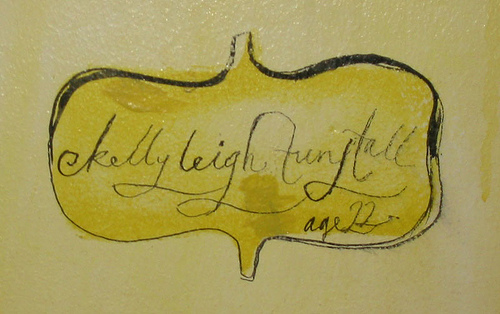 kelly leigh tunstall
age 22